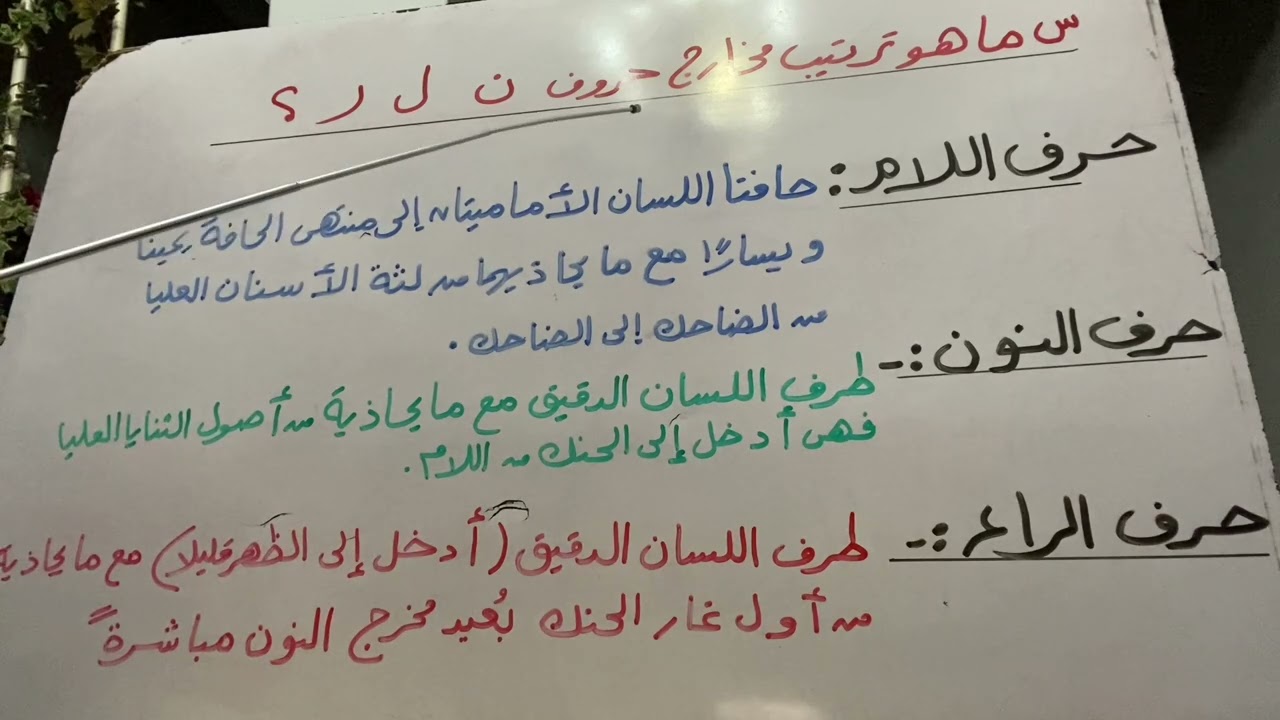 س ما هو ترتيب مخارج حروف ن ل ر ؟
حرف اللام : حافتا اللسان الأماميتان إلى منتهى الحافة يمينا
ويسارًا مع ما يحاذيهما من لثة الأسنان العليا
من الضاحك إلى الضاحك .
حرف النون :- طرف اللسان الدقيق مع ما يحاذية من أصول الثنايا العليا
فهى أدخل إلى الحنك من اللام .
حرف الراء :- طرف اللسان الدقيق (أدخل إلى الظهر قليلا) مع ما يحاذية
من أول غار الحنك بُعيد مخرج النون مباشرةً